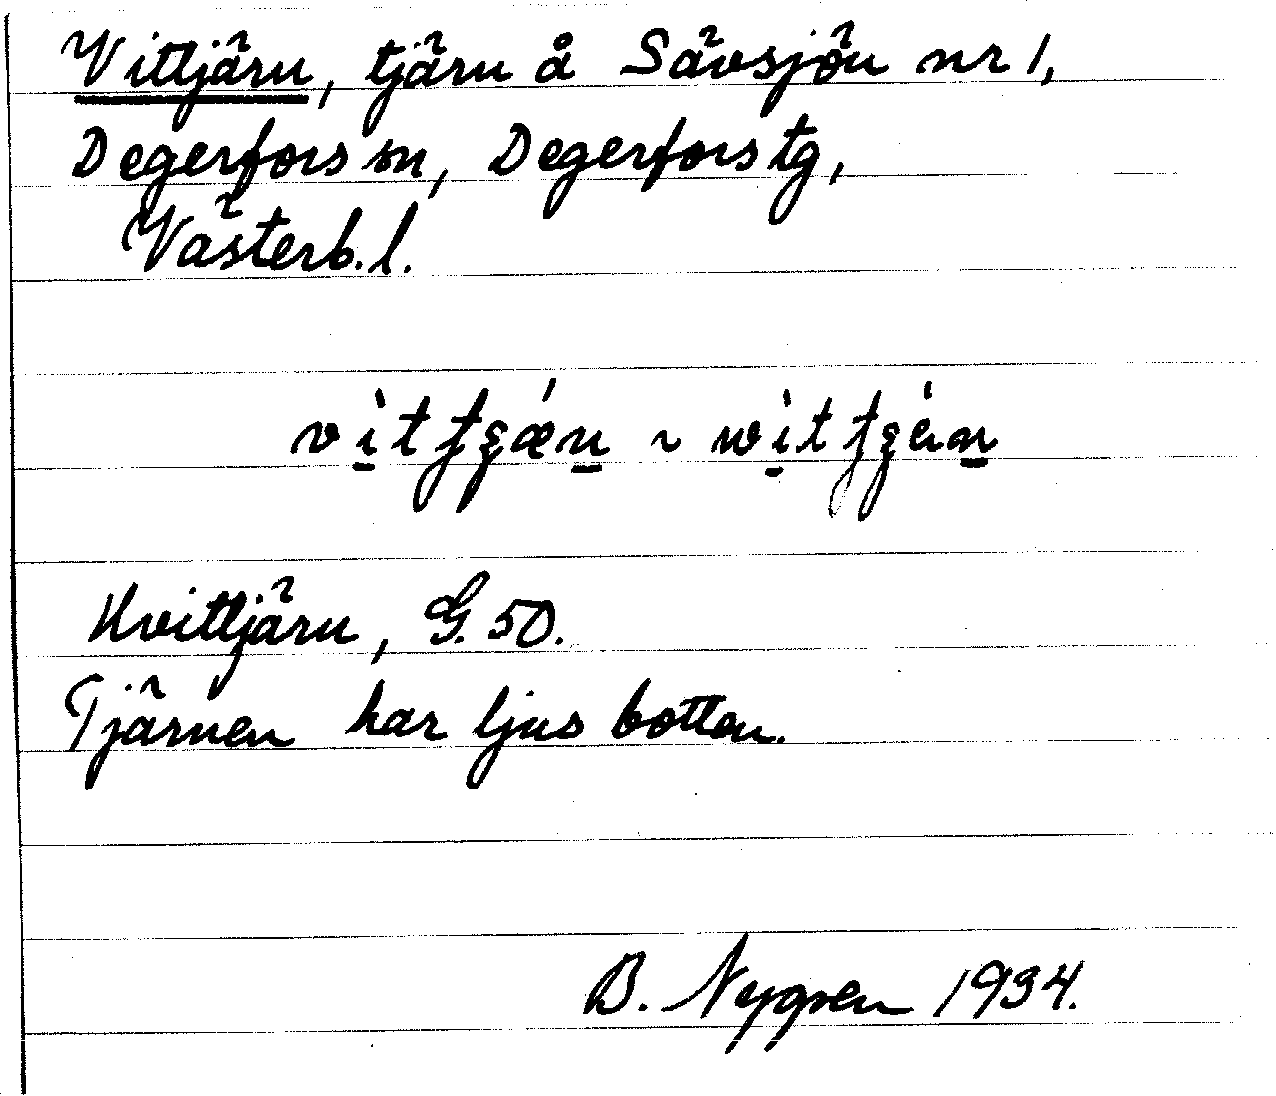 Vittjärn, tjärn å Sävsjön nr 1,
Degerfors sn, Degerfors tg,
Västerb. l.
Kvittjärn, G. 50.
Tjärnen har ljus botten.
B. Nygren 1934.